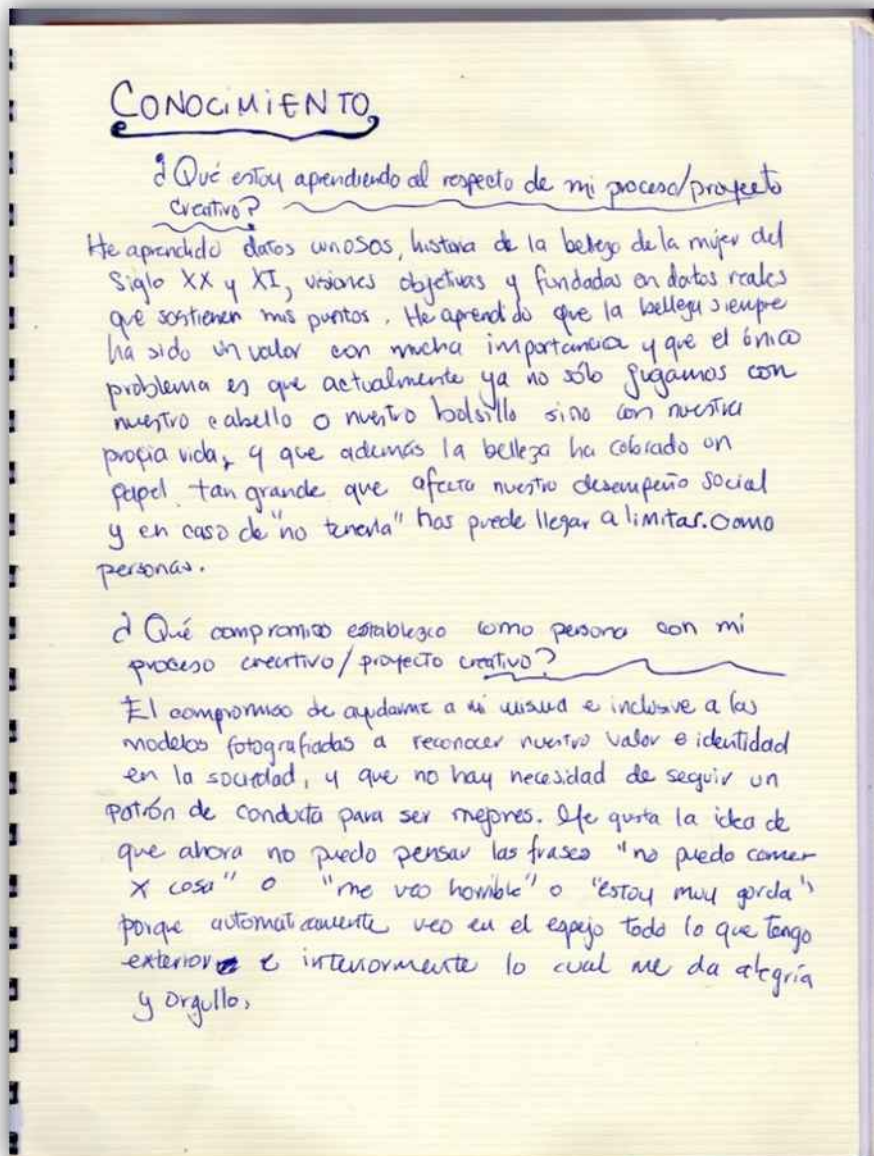 CONOCIMIENTO
¿Qué estoy aprendiendo al respecto de mi proceso/proyecto
creativo?
He aprendido datos curiosos, historia de la belleza de la mujer del
Siglo XX y XI, visiones objetivas y fundadas en datos reales
que sostienen mis puntos. He aprendido que la belleza siempre
ha sido un valor con mucha importancia y que el único
problema es que actualmente ya no sólo jugamos con
nuestro cabello o nuestro bolsillo sino con nuestra
propia vida, y que además la belleza ha cobrado un
papel tan grande que afecta nuestro desempeño social
y en caso de "no tenerla" nos puede llegar a limitar como
personas.
¿Qué compromiso establezco como persona con mi
proceso creativo/proyecto creativo?
El compromiso de ayudarme a mi misma e inclusive a las
modelos fotografiadas a reconocer nuestro valor e identidad
en la sociedad, y que no hay necesidad de seguir un
patrón de conducta para ser mejores. Me gusta la idea de
que ahora no puedo pensar las frases "no puedo comer
X cosa" o "me veo horrible" o "estoy muy gorda"
porque automaticamente veo en el espejo todo lo que tengo
exterior e interiormente lo cual me da alegría
y orgullo.